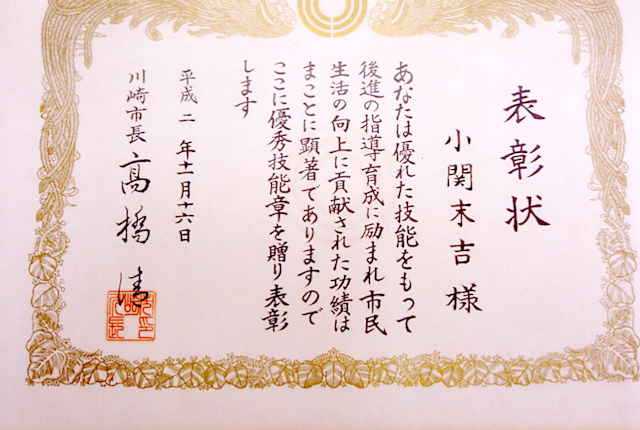 表彰状
小関末吉様
あなたは優れた技能をもって
後進の指導育成に励まれ市民
生活の向上に貢献された功績は
まことに顕著でありますので
ここに優秀技能章を贈り表彰
します
平成二年十一月十六日
川崎市長 高橋清